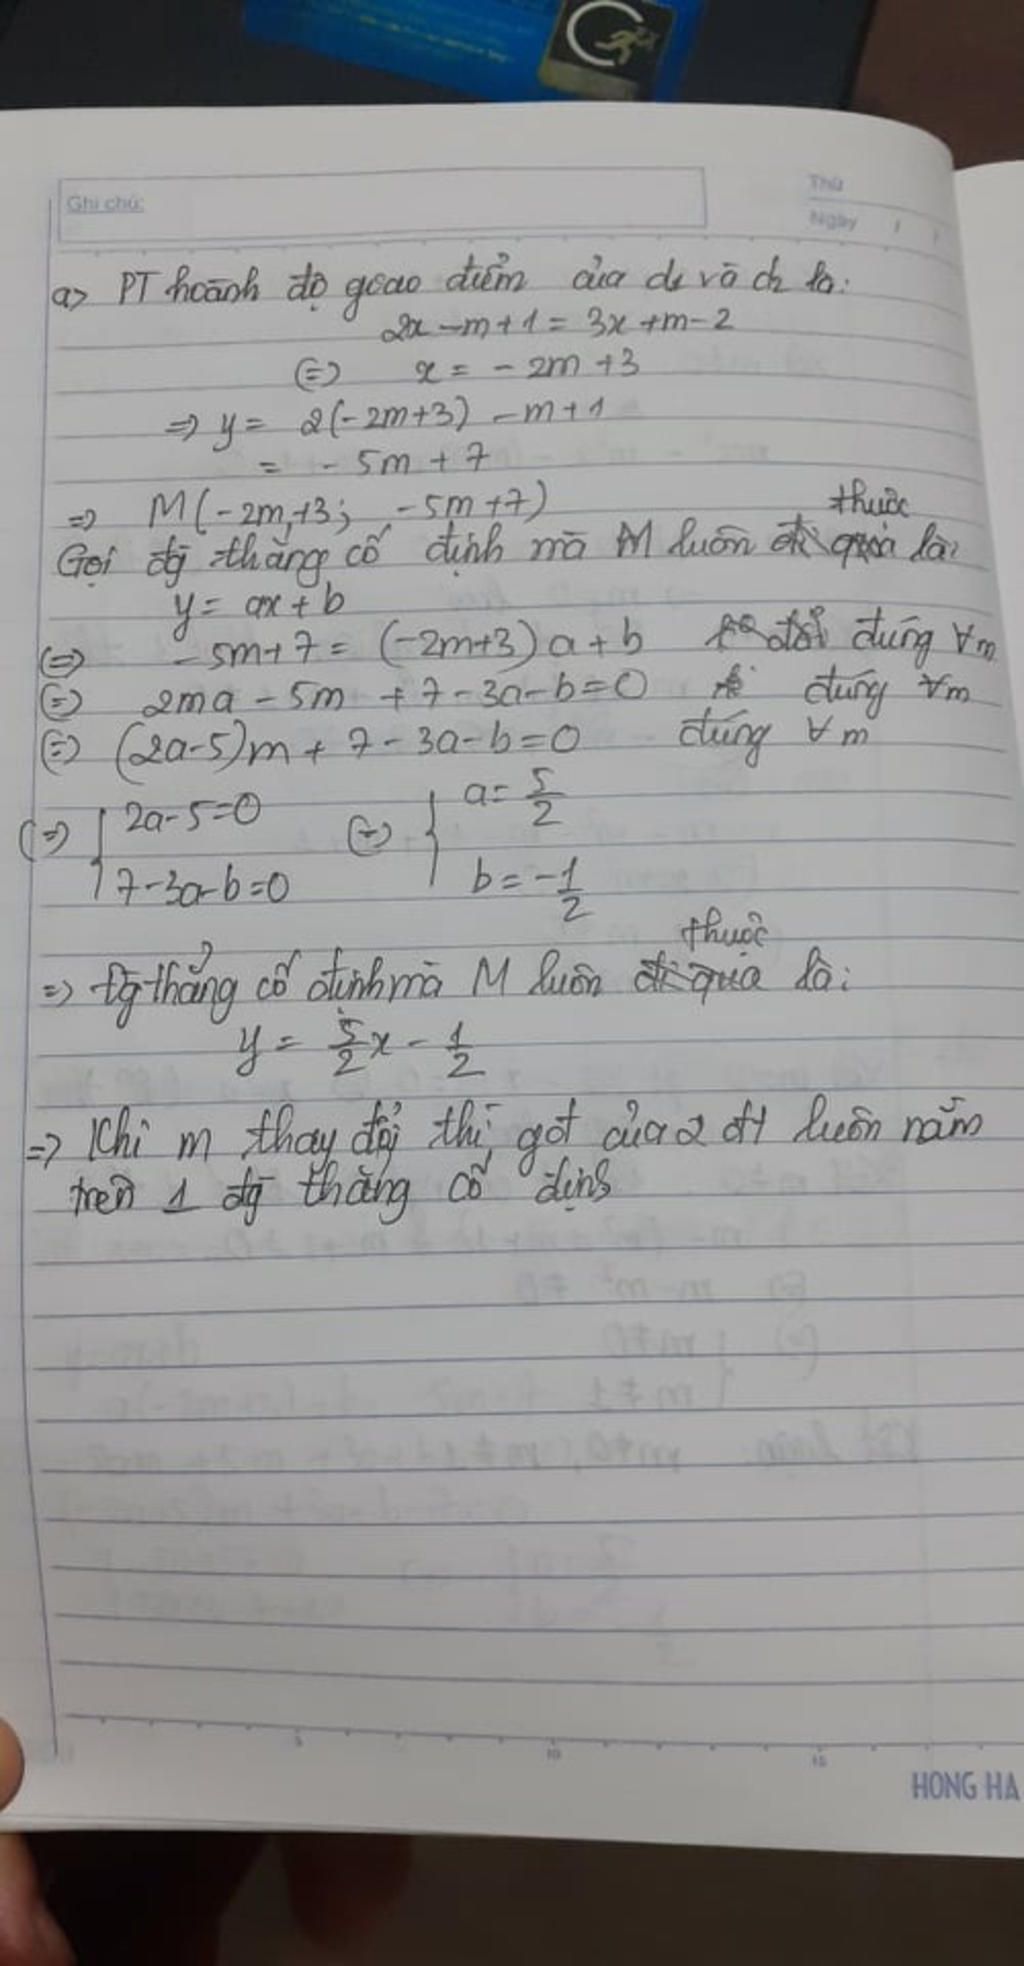 Ghi chú:
Thứ
Ngày / /
a> PT hoành độ giao điểm của d1 và d2 là:
2x - m + 1 = 3x + m - 2
(=) x = - 2m + 3
=> y = 2(-2m+3) - m + 1
= - 5m + 7
=> M(-2m+3; -5m+7)
thuộc
Gọi đg thẳng cố định mà M luôn đi qua là:
y = ax + b
(=) - 5m + 7 = (-2m+3) a + b đúng ∀m
(=) 2ma - 5m + 7 - 3a - b = 0 đúng ∀m
(=) (2a-5)m + 7 - 3a - b = 0 đúng ∀m
(=) { 2a - 5 = 0 (=) { a = 5/2
7 - 3a - b = 0 b = -1/2
thuộc
=> Đg thẳng cố định mà M luôn đi qua là:
y = 5/2x - 1/2
=> Khi m thay đổi thì gđ của 2 đt luôn nằm
trên 1 đg thẳng cố định
5 10 15
HONG HA